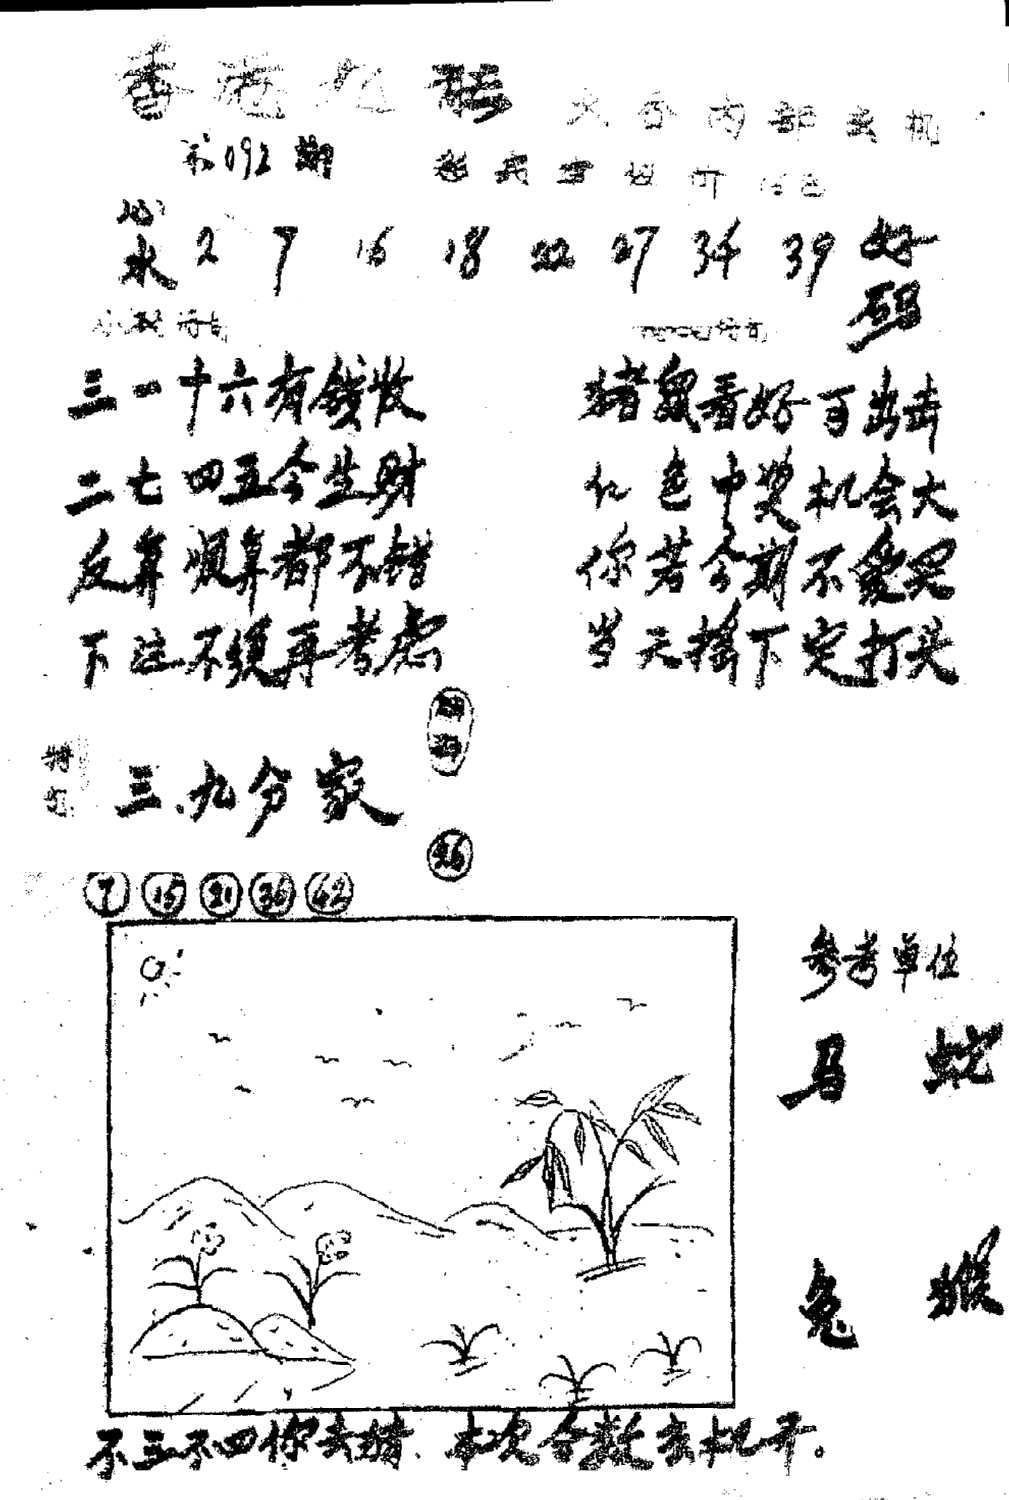 香港
六合内部玄机
第092期
心水 2 7 16 18 22 27 34 39 好码
三一十六有钱收
二七四五今生财
反算顺算都不错
下注不须再考虑
猪鼠看好可出击
红色中奖机会大
你若今期不爱买
当天摇下定打头
三、九分家
26
7 15 21 36 42
参考单位
马 蛇
兔 猴
不三不四你去猜、本次合数玄机开。